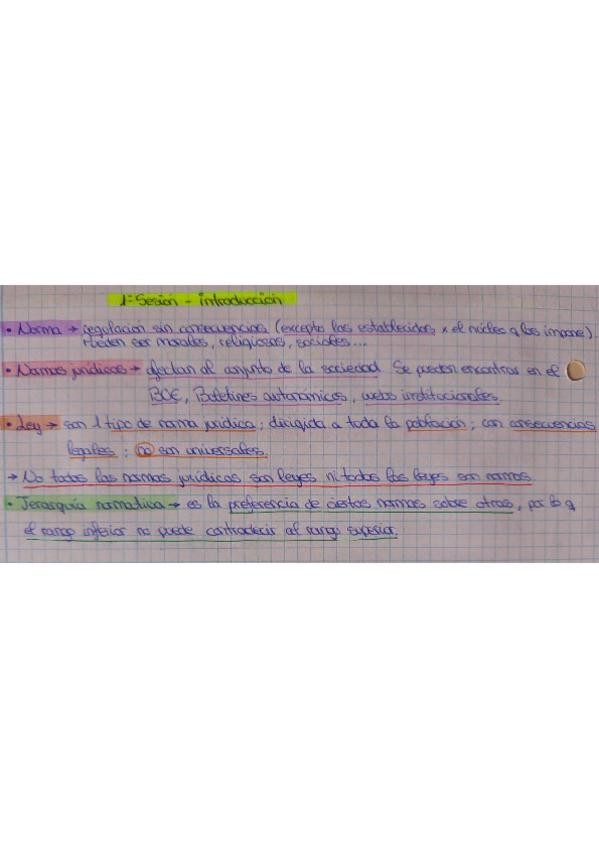 1ª Sesión - introducción
• Norma → regulación sin consecuencias (excepto las establecidas x el núcleo q las impone)
Pueden ser morales, religiosas, sociales...
• Normas jurídicas → afectan al conjunto de la sociedad. Se pueden encontrar en el
BOE, Boletines autonómicos, webs institucionales.
• Ley → son 1 tipo de norma jurídica; dirigida a toda la población; con consecuencias
legales; no son universales.
→ No todas las normas jurídicas son leyes ni todas las leyes son normas.
• Jerarquía normativa → es la preferencia de ciertas normas sobre otras, por lo q
el rango inferior no puede contradecir al rango superior.